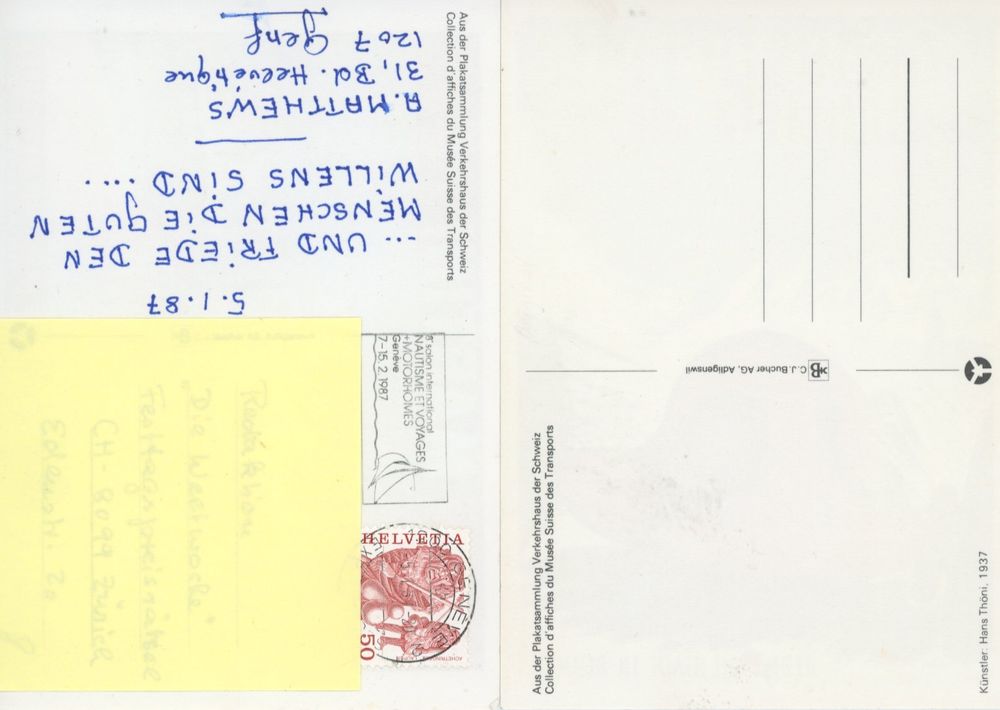 5.1.87
... UND FRIEDE DEN
MENSCHEN DIE GUTEN
WILLENS SIND ....
A. MATTHEWS
31, Bd. Helvétique
1207 Genf
Aus der Plakatsammlung Verkehrshaus der Schweiz
Collection d'affiches du Musée Suisse des Transports
8e salon international
NAUTISME ET VOYAGES
+MOTORHOMES
Genève
7-15.2.1987
HELVETIA
50
Redaktion
"Die Weltwoche"
CH-8099 Zürich
Edenstr. 20
C. J. Bucher AG, Adligenswil
Aus der Plakatsammlung Verkehrshaus der Schweiz
Collection d'affiches du Musée Suisse des Transports
Künstler: Hans Thöni, 1937